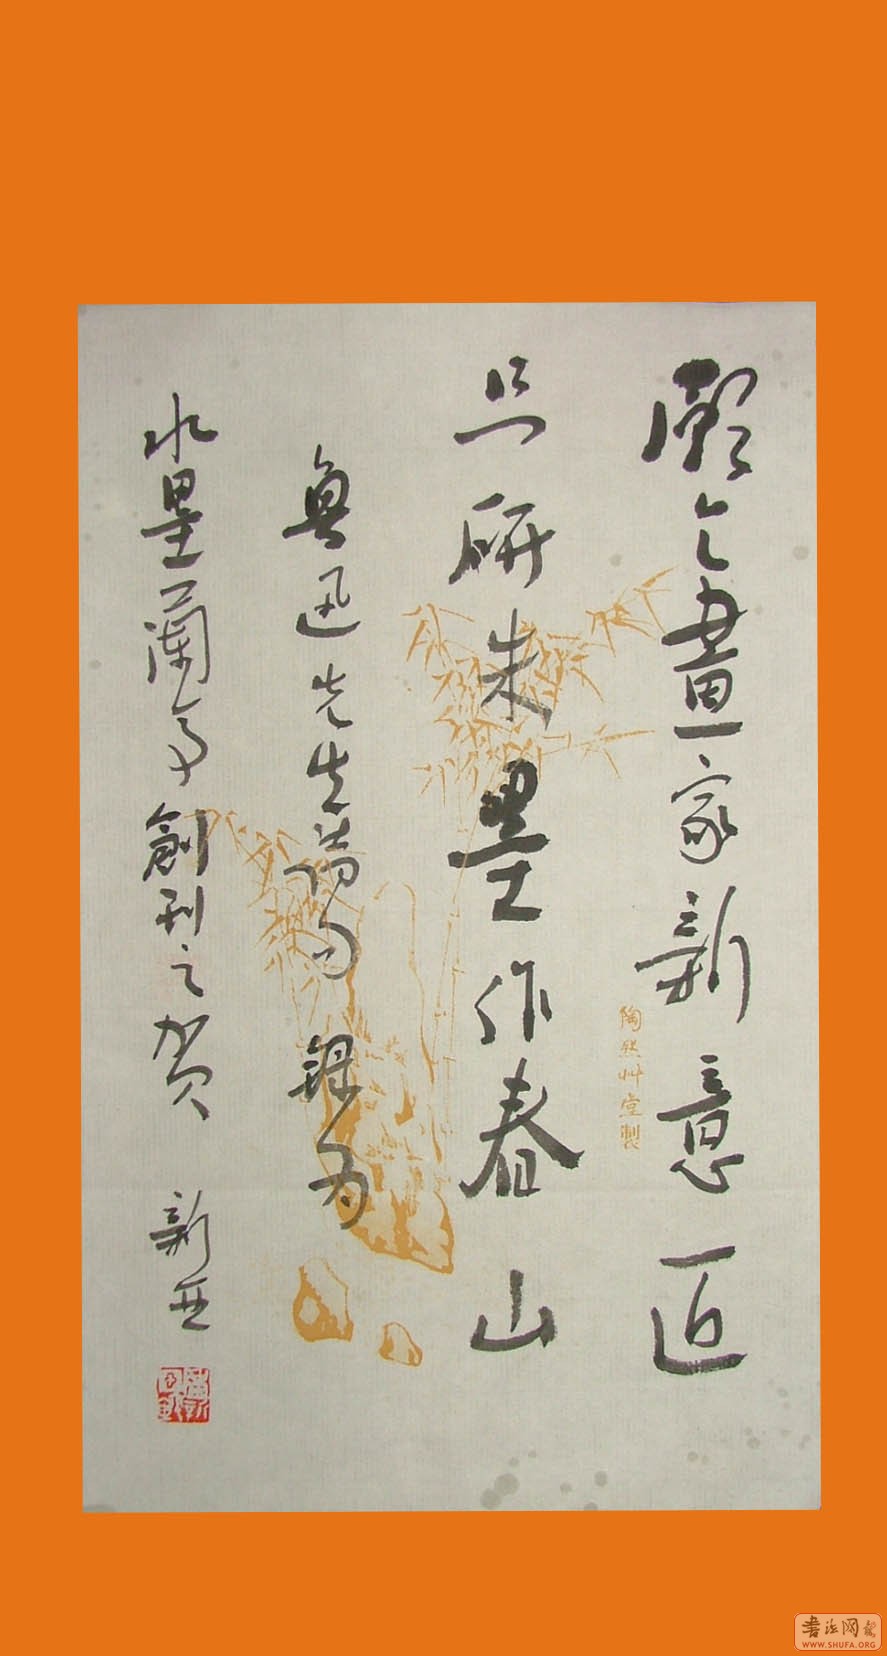 願乞畫家新意匠
只研朱墨作春山
魯迅先生詩句 録为
水墨蘭亭創刊之賀 新亞
陶然艸堂製
書法网
WWW.SHUFA.ORG